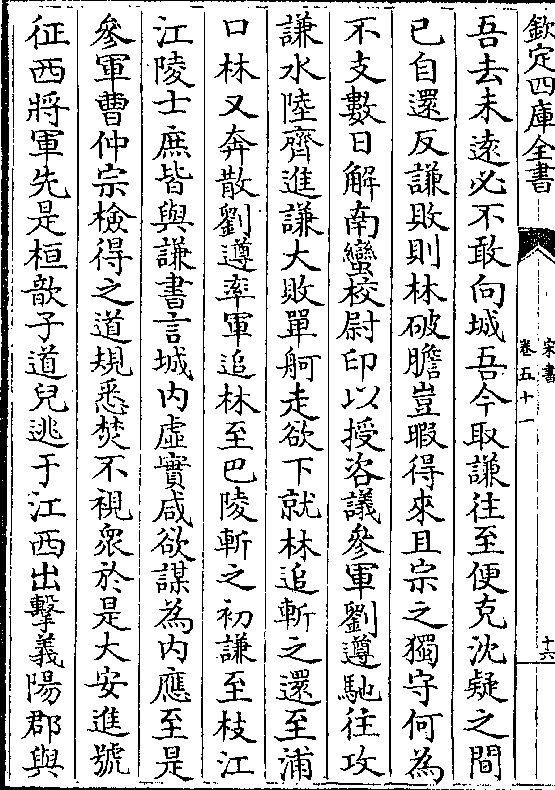 欽定四庫全書
宋書
卷五十一
十六
吾去未逺必不敢向城吾今取謙往至便克沈疑之間
已自還反謙敗則林破膽豈暇得來且宗之獨守何為
不支數日解南蠻校尉印以授咨議參軍劉遵馳往攻
謙水陸齊進謙大敗單舸走欲下就林追斬之還至浦
口林又奔散劉遵率軍追林至巴陵斬之初謙至枝江
江陵士庶皆與謙書言城内虚實咸欲謀為内應至是
參軍曹仲宗檢得之道規悉焚不視衆於是大安進號
征西將軍先是桓歆子道兒逃于江西出擊義陽郡與